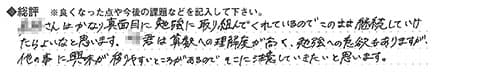 ◆総評 ※良くなった点や今後の課題などを記入して下さい。
さんはかなり真面目に勉強に取り組んでくれているのでこのまま継続していけ
たらよいなと思います。 君は算数への理解度が高く、勉強への意欲もありますが、
他の事に興味が移りやすいところがあるのでそこに注意していきたいと思います。